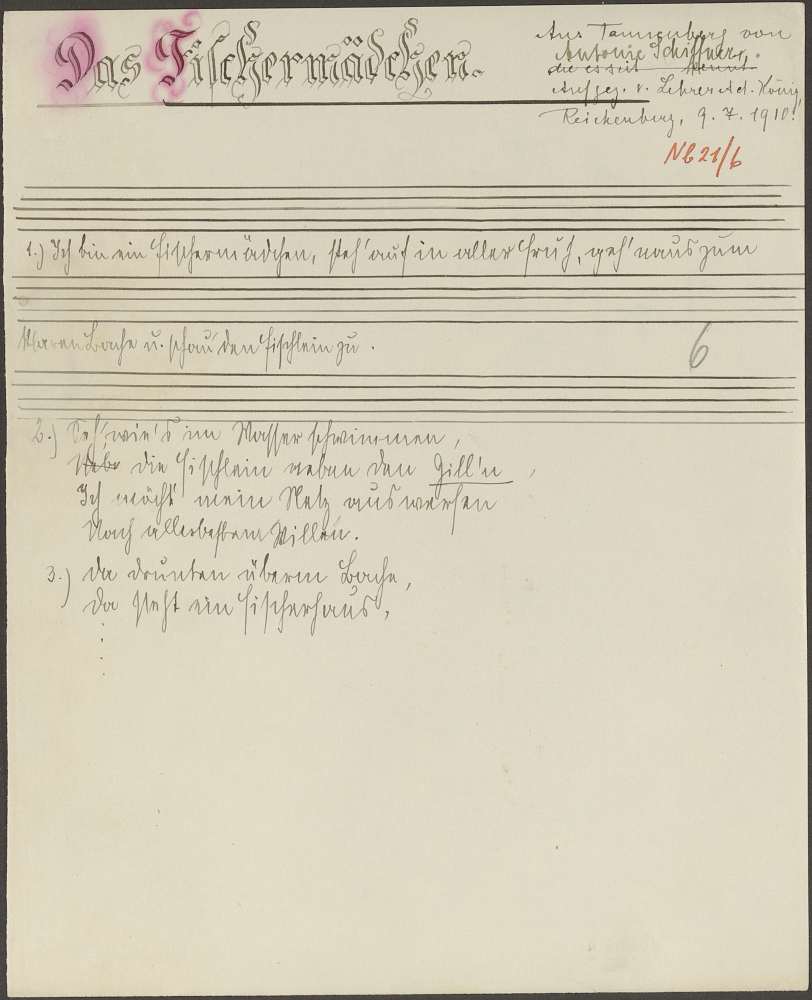 Das Fischermädchen.
Aus Tannenberg von
Antonie Schiffner,
die es seit kennt
Aufgez. v. Lehrer Ad. König,
Reichenberg, 9. 7. 1910.
Nb 21/6
1.) Ich bin ein Fischermädchen, steh' auf in aller Früh, geh' naus zum
klaren Bache u. schau' den Fischlein zu.
6
2.) Seh', wie's im Wasser schwimmen,
die Fischlein neben den Zill'n,
Ich möcht' mein Netz auswerfen
Nach allerbestem Willen.
3.) Da drunten überm Bache,
Da steht ein Fischerhaus,